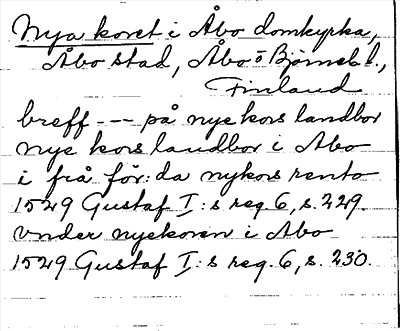 Nya koret i Åbo domkyrka,
Åbo stad, Åbo o Björneb. l.,
Finland
breff --- på nye kors landbor
nye kors landbor i Abo
i frå för: da nykors rento
1529 Gustaf I:s reg. 6, s. 229.
Vnder nyekoren i Abo
1529 Gustaf I:s reg. 6, s. 230.